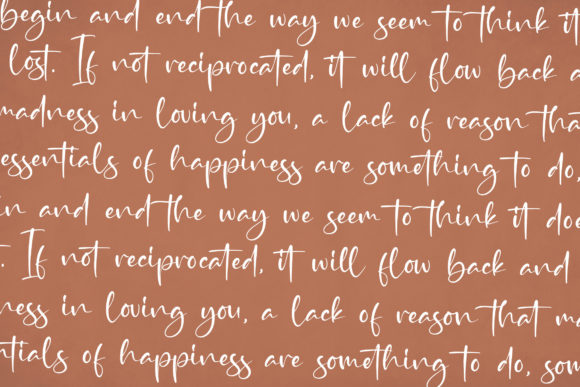 begin and end the way we seem to think it
lost. If not reciprocated, it will flow back a
madness in loving you, a lack of reason that
essentials of happiness are something to do,
in and end the way we seem to think it doe
. If not reciprocated, it will flow back and
ness in loving you, a lack of reason that ma
ntials of happiness are something to do, som